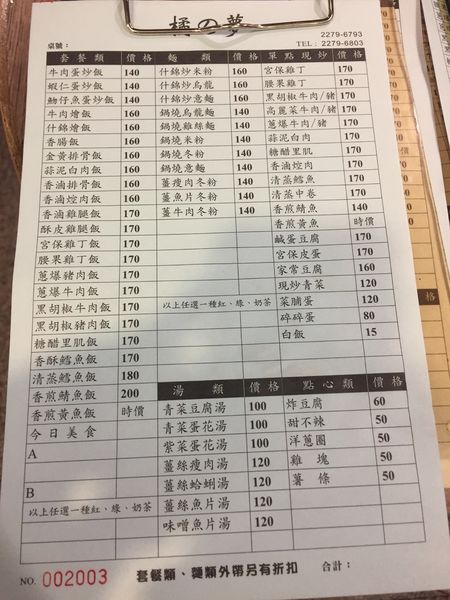 橘の夢
桌號：
2279-6793
TEL： 2279-6803
套餐類 價格
牛肉蛋炒飯 140
蝦仁蛋炒飯 140
魩仔魚蛋炒飯 140
牛肉燴飯 160
什錦燴飯 160
香腸飯 160
金黃排骨飯 160
蒜泥白肉飯 160
香滷排骨飯 160
香滷焢肉飯 160
香滷雞腿飯 170
酥皮雞腿飯 170
宮保雞丁飯 170
腰果雞丁飯 170
蔥爆豬肉飯 170
蔥爆牛肉飯 170
黑胡椒牛肉飯 170
黑胡椒豬肉飯 170
糖醋里肌飯 170
香酥鱈魚飯 170
清蒸鱈魚飯 180
香煎鯖魚飯 200
香煎黃魚飯 時價
今日美食
A
B
以上任選一種紅、綠、奶茶
麵類 價格
什錦炒米粉 160
什錦炒烏龍 160
什錦炒意麵 160
鍋燒烏龍麵 140
鍋燒雞絲麵 140
鍋燒米粉 140
鍋燒冬粉 140
鍋燒意麵 140
薑瘦肉冬粉 140
薑魚片冬粉 140
薑牛肉冬粉 140
以上任選一種紅、綠、奶茶
單點現炒 價格
宮保雞丁 170
腰果雞丁 170
黑胡椒牛肉/豬 170
高麗菜牛肉/豬 170
蔥爆牛肉/豬 170
蒜泥白肉 170
糖醋里肌 170
香滷焢肉 170
清蒸鱈魚 170
清蒸中卷 170
香煎鯖魚 140
香煎黃魚 時價
鹹蛋豆腐 170
宮保皮蛋 170
家常豆腐 160
現炒青菜 120
菜脯蛋 120
碎碎蛋 80
白飯 15
湯類 價格
青菜豆腐湯 100
青菜蛋花湯 100
紫菜蛋花湯 100
薑絲瘦肉湯 120
薑絲蛤蜊湯 120
薑絲魚片湯 120
味噌魚片湯 120
點心類 價格
炸豆腐 60
甜不辣 50
洋蔥圈 50
雞塊 50
薯條 50
NO. 002003
套餐類、麵類外帶另有折扣
合計：
格